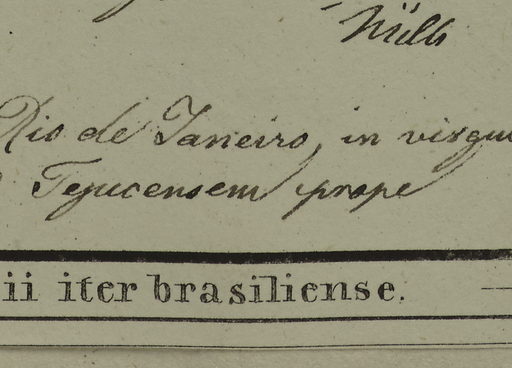 Rio de Janeiro, in virgu
Tejucensem prope
ii iter brasiliense.